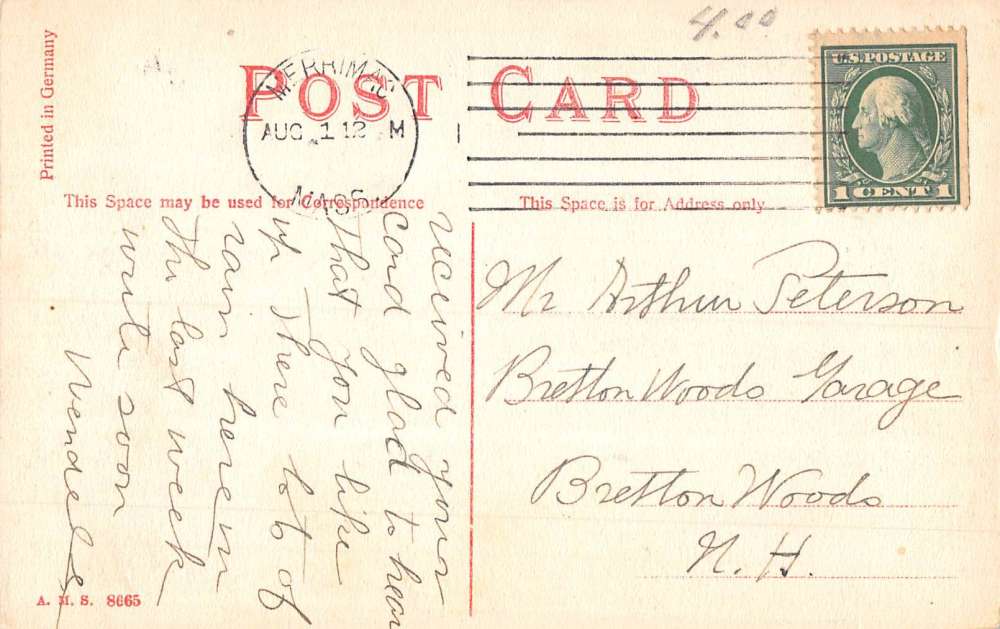 4.00
Printed in Germany
POST CARD
MERRIMAC
AUG 1 12 M
MASS
U.S. POSTAGE
1 CENT 1
This Space may be used for Correspondence
This Space is for Address only
received your
card glad to hear
that you like
up there lots of
rain here in
the last week
write soon
Wendell
Mr Arthur Peterson
Bretton Woods Garage
Bretton Woods
N. H.
A. M. S. 8665